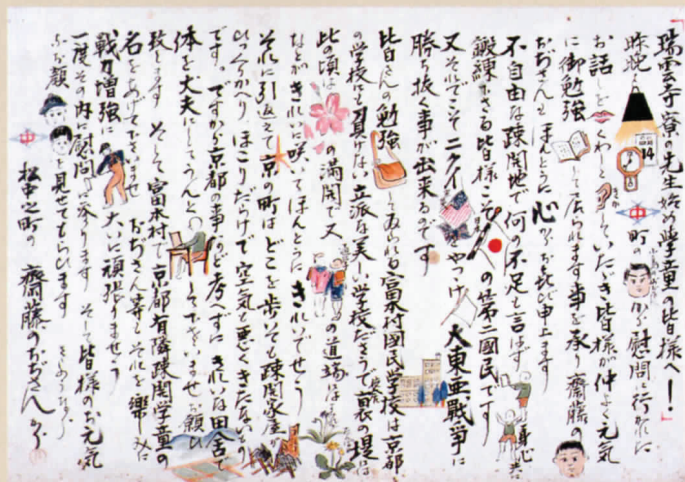 「瑞雲寺寮の先生始め学童の皆様へー!
昨晩 14 中町の から慰問に行かれた
お話しを くわーしく していたゞき皆様が仲よく元気
に御勉強 して居られます事を承り齋藤の
おぢさんもほんとうに心からお喜び申ます
不自由な疎開地で何の不足も言はず 身心共に
鍛練なさる皆様こそ への第二國民です
又それでこそニクイ をやつけ大東亜戦争に
勝ち抜く事が出来るのです
皆さんの勉強 しておられる富本村國民学校は京都
の学校にも負けない立派な美しい学校ださうで裏の堤は
此の頃は の満開で又 の道端は
などがきれいに咲いてほんとうにきれいでせう
それに引返えて京の町はどこを歩いても疎開家屋が
ひつくりかへりほこりだらけで空気も悪くきたないもの
です。ですから京都の事など考へずにきれいな田舎で
体を丈夫にしてうんと して下さいませ お願ひ
致します そして富本村で京都有隣疎開学童の
名をあげて下さいませ おぢさん等もそれを楽しみに
戦力増強に 大いに頑張りませう
一度その内に慰問に参ります そして皆様のお元気
なお顔 を見せてもらひます さやうなら
中 松中之町の 齋藤のおぢさんから